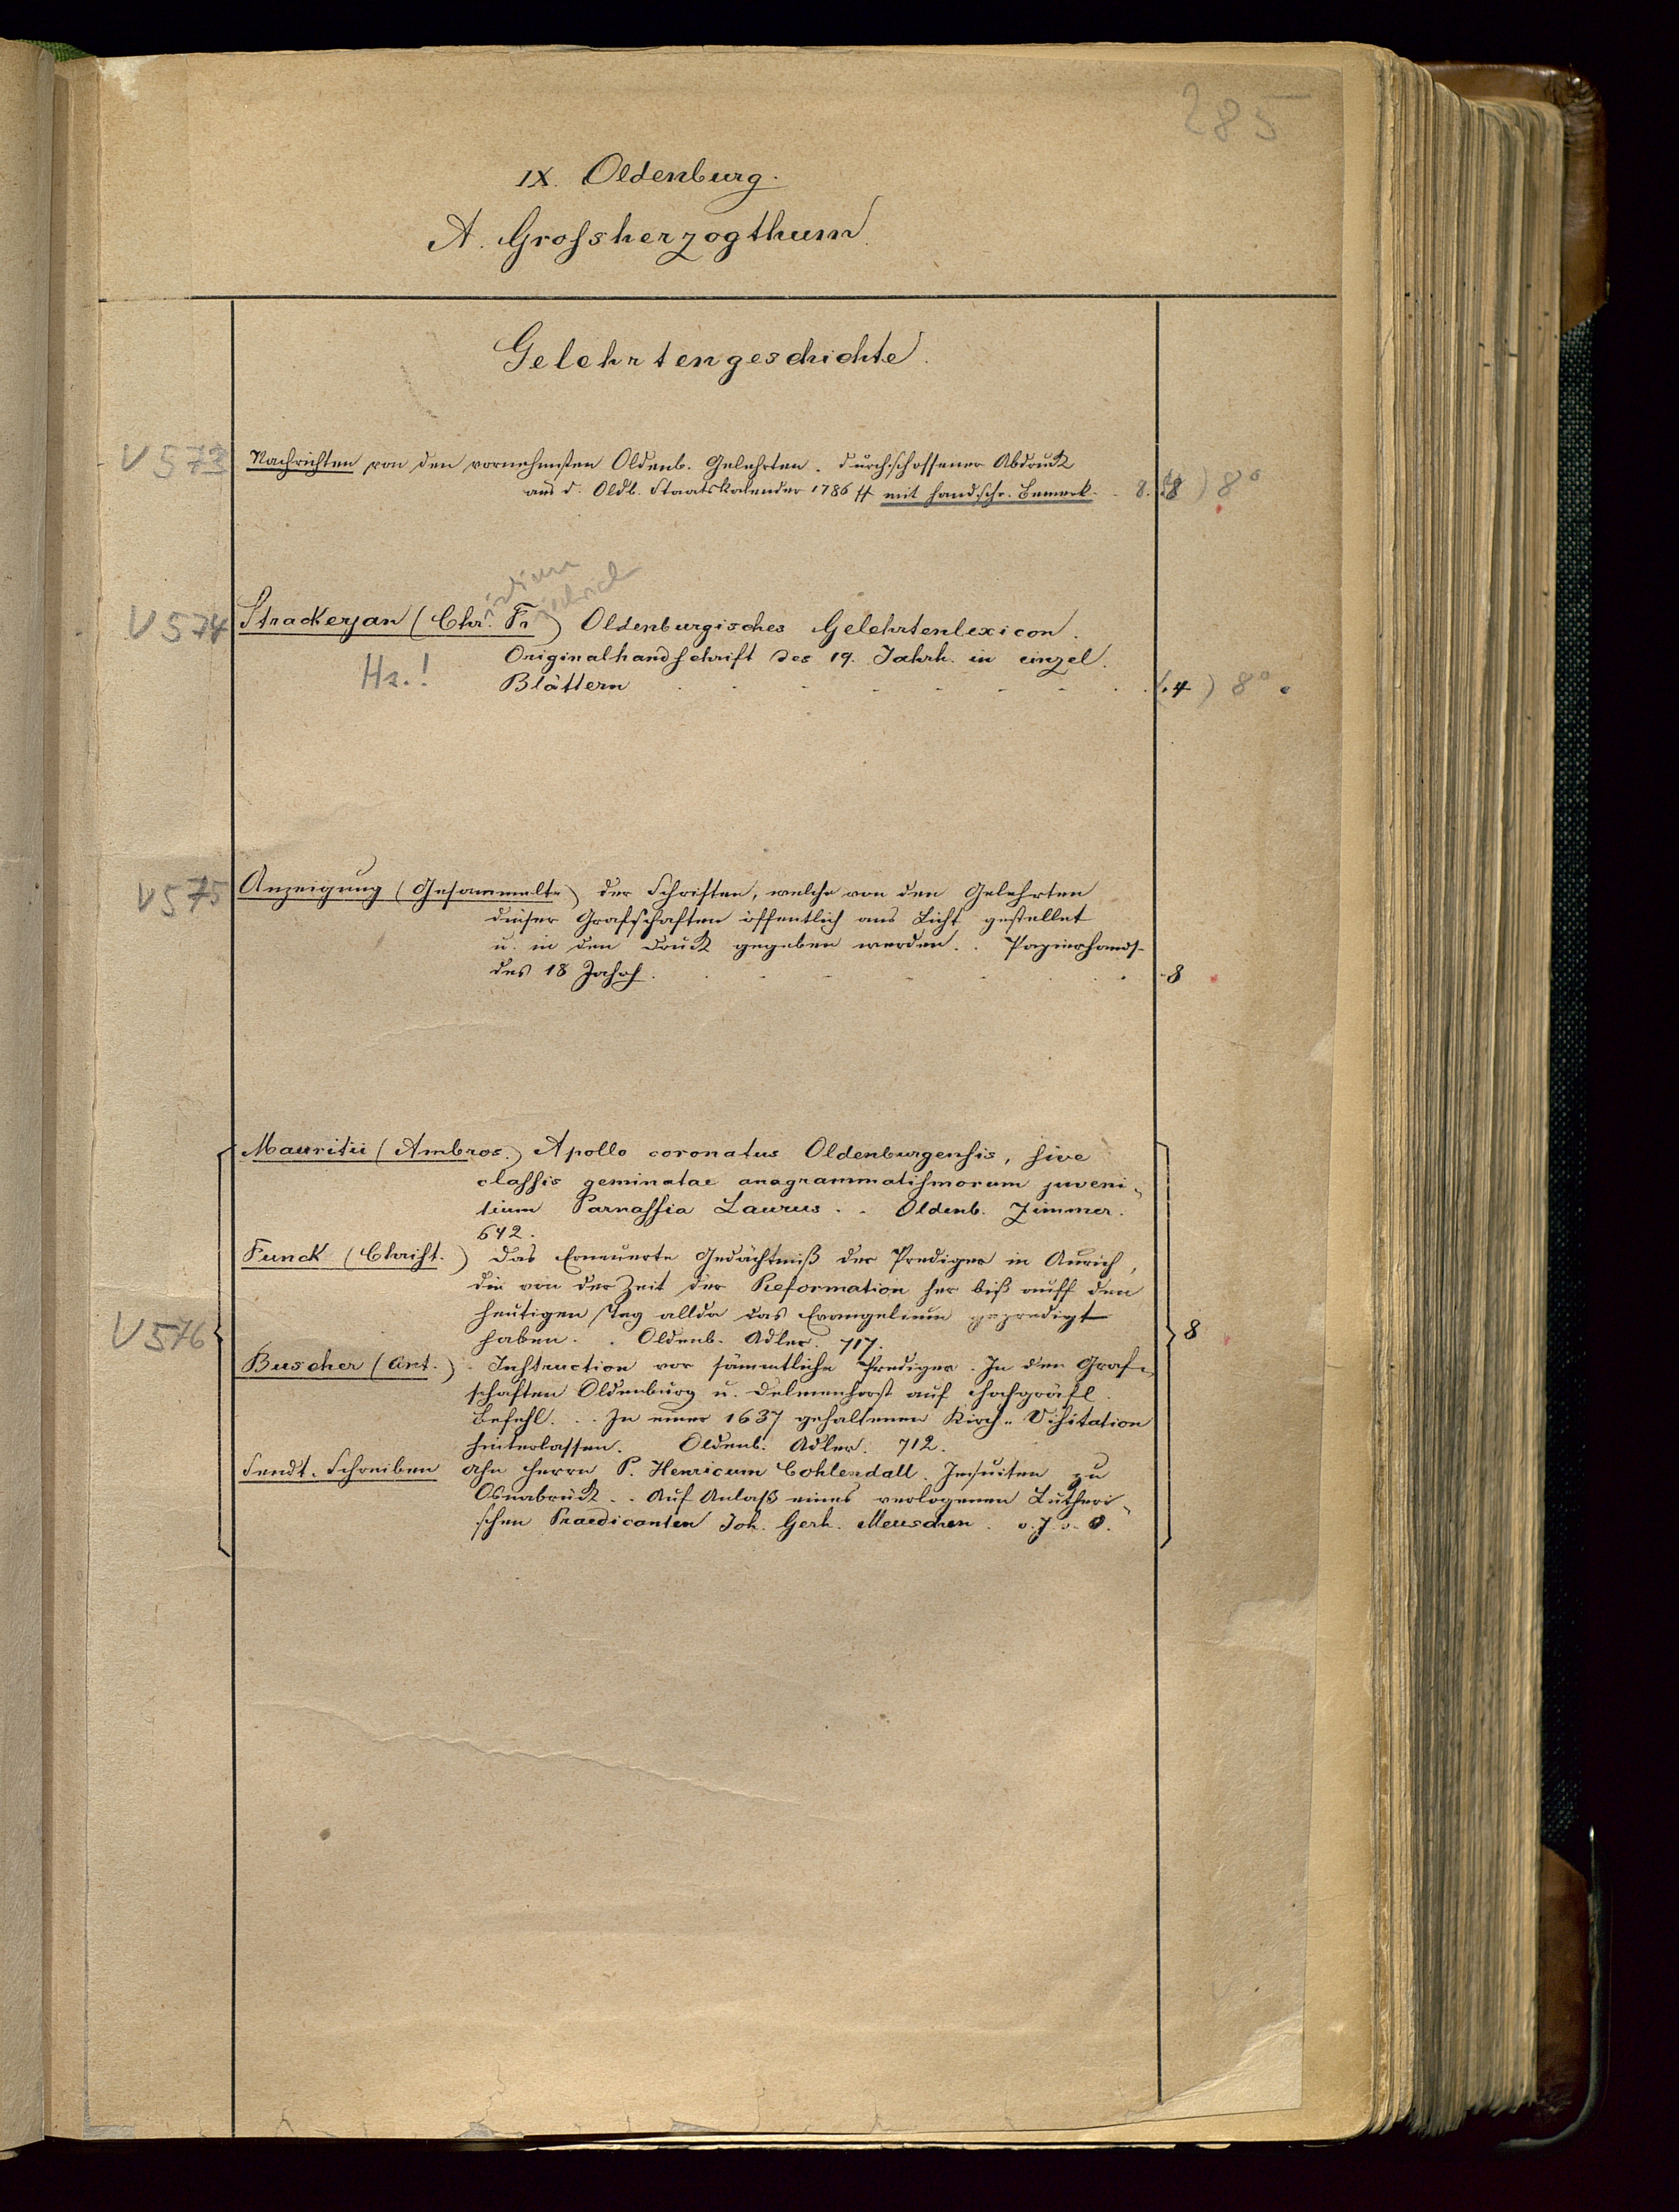 285
IX. Oldenburg.
A. Grossherzogthum
Gelehrtengeschichte.
V 573 Nachrichten von den vornehmsten Oldenb. Gelehrten. durchschossener Abdruck
aus d. Oldb. Staatskalender 1786 ff mit handschr. Bemerk. . 8. (8) 8°
istian iedrich
V 574 Strackerjan (Chr. Fr) Oldenburgisches Gelehrtenlexicon.
Originalhandschrift des 19. Jahrh. in einzel.
Hs.! Blättern . . . . . . . . (. 4 ) 8°
V 575 Anzeigung (Gesammelte) der Schriften, welche von den Gelehrten
dieser Grafschaften öffentlich ans Licht gestellet
u. in den Druck gegeben worden. . Papierhands-
des 18 Jahrh. . . . . . 8
Mauritii (Ambros.) Apollo coronatus Oldenburgensis, sive
classis geminatae anagrammatismorum juveni-
lium Parnassia Laurus . . Oldenb. Zimmer.
642.
Funck (Christ.) Das Erneuerte Gedächtniß der Prediger in Aurich,
die von der Zeit der Reformation her biß auff den
heutigen Tag allda das Evangelium gepredigt
V 576 haben. . Oldenb. Adler. 717. 8
Buscher (Ant.) Instruction vor sämmtliche Prediger. In den Graf-
schaften Oldenburg u. Delmenhorst auf Hochgräfl.
Befehl. . . In einer 1637 gehaltenen Kirch-Visitation
hinterlassen. Oldenb. Adler. 712.
Sendt-Schreiben ahn Herrn P. Henricum Cohlendall. Jesuiten zu
Osnabrück. . Auf Anlaß eines verlogenen Lutheri-
schen Praedicanten Joh. Gerh. Meuschen. o. J. o. O.